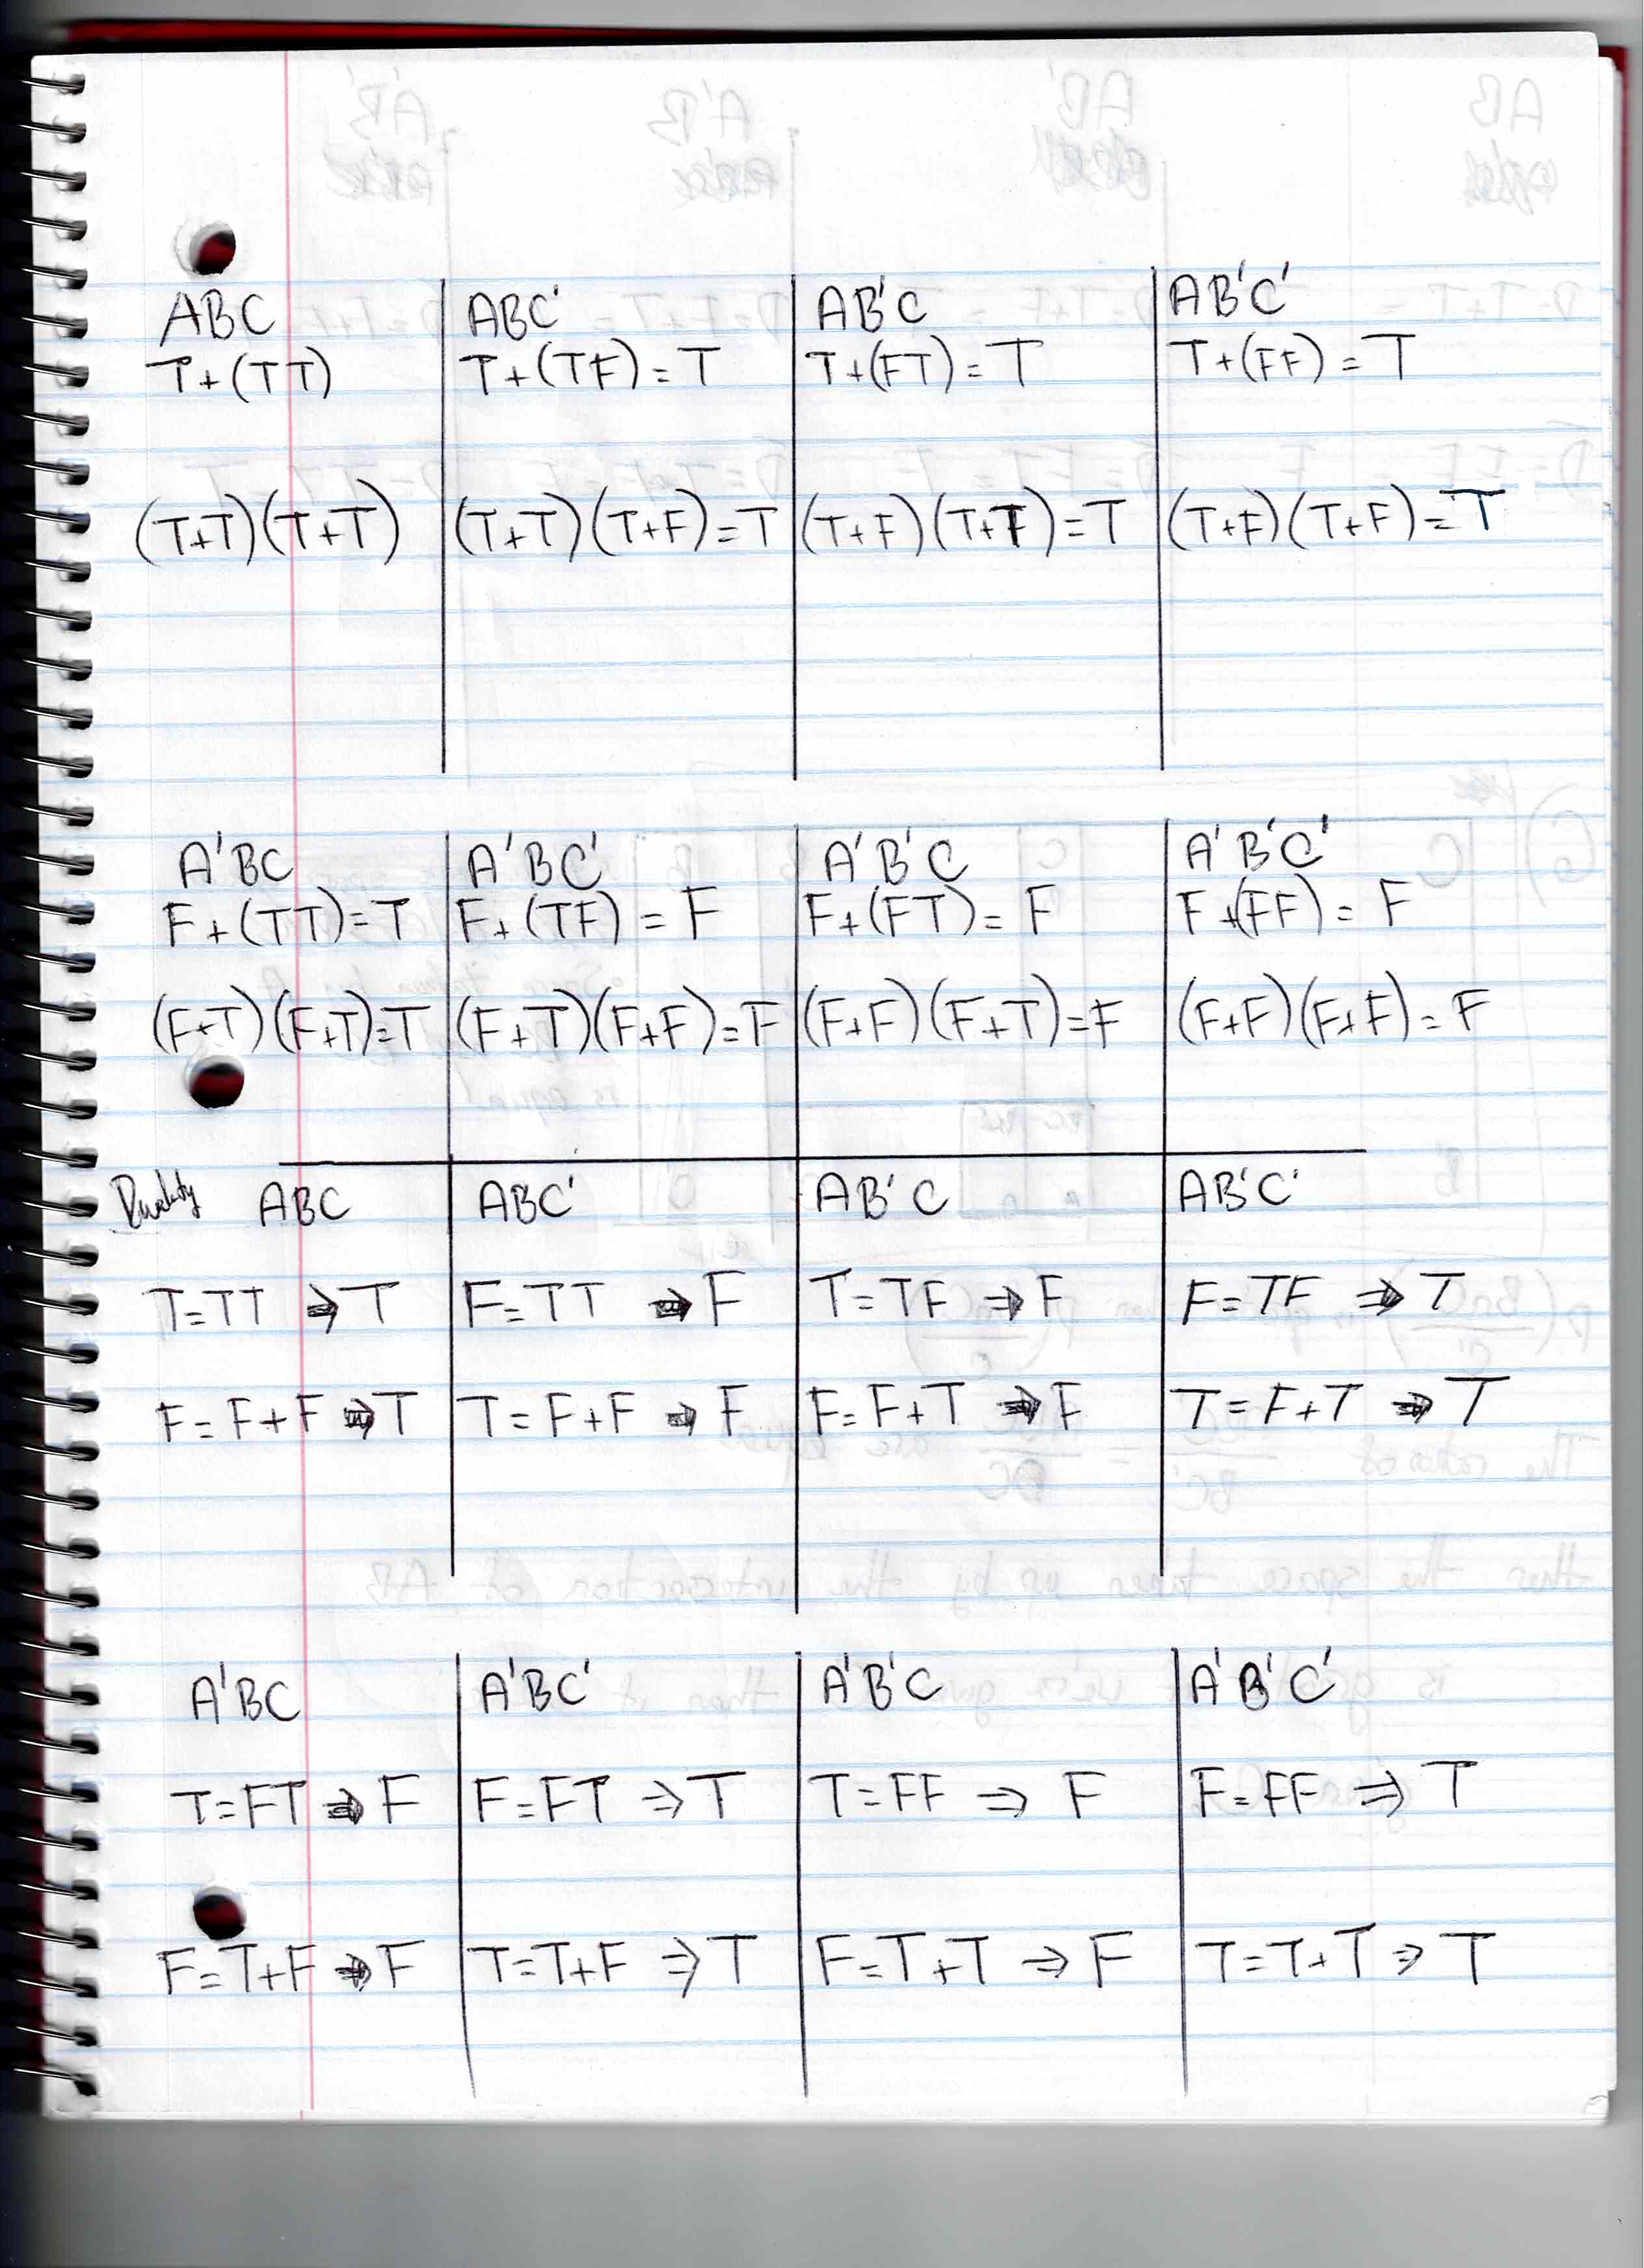 ABC | ABC' | AB'C | AB'C'
T+(TT) | T+(TF)=T | T+(FT)=T | T+(FF)=T
(T+T)(T+T) | (T+T)(T+F)=T | (T+F)(T+T)=T | (T+F)(T+F)=T
A'BC | A'BC' | A'B'C | A'B'C'
F+(TT)=T | F+(TF)=F | F+(FT)=F | F+(FF)=F
(F+T)(F+T)=T | (F+T)(F+F)=F | (F+F)(F+T)=F | (F+F)(F+F)=F
Duality ABC | ABC' | AB'C | AB'C'
T=TT ⇒ T | F=TT ⇒ F | T=TF ⇒ F | F=TF ⇒ T
F=F+F ⇒ T | T=F+F ⇒ F | F=F+T ⇒ F | T=F+T ⇒ T
A'BC | A'BC' | A'B'C | A'B'C'
T=FT ⇒ F | F=FT ⇒ T | T=FF ⇒ F | F=FF ⇒ T
F=T+F ⇒ F | T=T+F ⇒ T | F=T+T ⇒ F | T=T+T ⇒ T